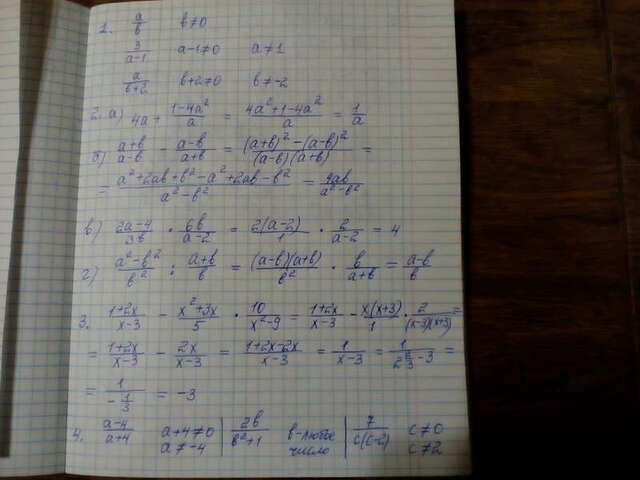 1. a/в в≠0
3/(a-1) a-1≠0 a≠1
a/(в+2) в+2≠0 в≠-2
2. а) 4a + (1-4a²)/a = (4a²+1-4a²)/a = 1/a
б) (a+в)/(a-в) - (a-в)/(a+в) = ((a+в)²-(a-в)²)/((a-в)(a+в)) =
= (a²+2aв+в²-a²+2aв-в²)/(a²-в²) = 4aв/(a²-в²)
в) (2a-4)/3в · 6в/(a-2) = 2(a-2)/1 · 2/(a-2) = 4
г) (a²-в²)/в² : (a+в)/в = (a-в)(a+в)/в² · в/(a+в) = (a-в)/в
3. (1+2x)/(x-3) - (x²+3x)/5 · 10/(x²-9) = (1+2x)/(x-3) - x(x+3)/1 · 2/((x-3)(x+3)) =
= (1+2x)/(x-3) - 2x/(x-3) = (1+2x-2x)/(x-3) = 1/(x-3) = 1/(2 2/3 - 3) =
= 1/(-1/3) = -3
4. (a-4)/(a+4) a+4≠0 a≠-4 | 2в/(в²+1) в-любое число | 7/(c(c-2)) c≠0 c≠2